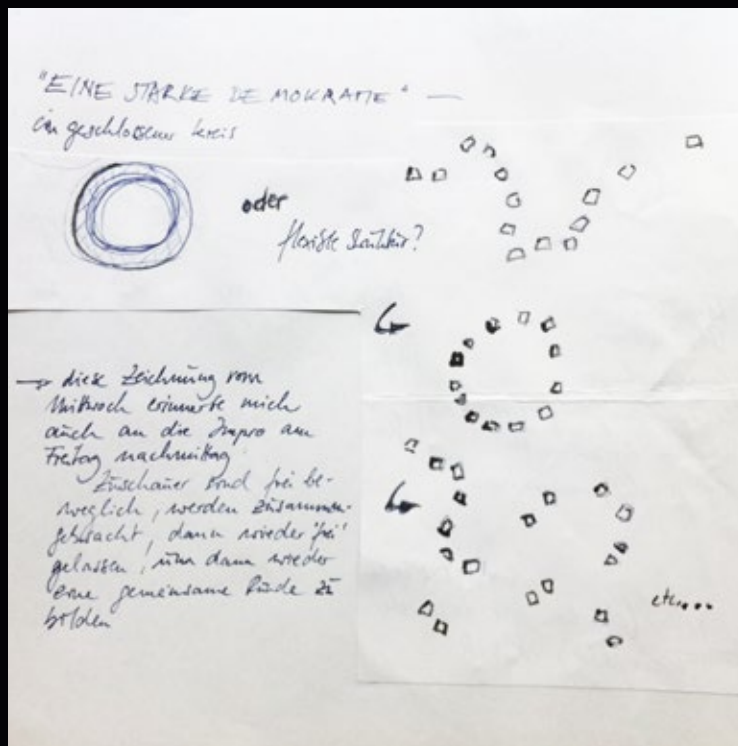 "EINE STARKE DEMOKRATIE" —
ein geschlossener kreis
oder
flexible Struktur?
→ diese Zeichnung vom
Mittwoch erinnerte mich
auch an die Impro am
Freitag nachmittag.
Zuschauer sind frei be-
weglich, werden zusammen-
gebracht, dann wieder 'frei'
gelassen, um dann wieder
eine gemeinsame Runde zu
bilden
etc....